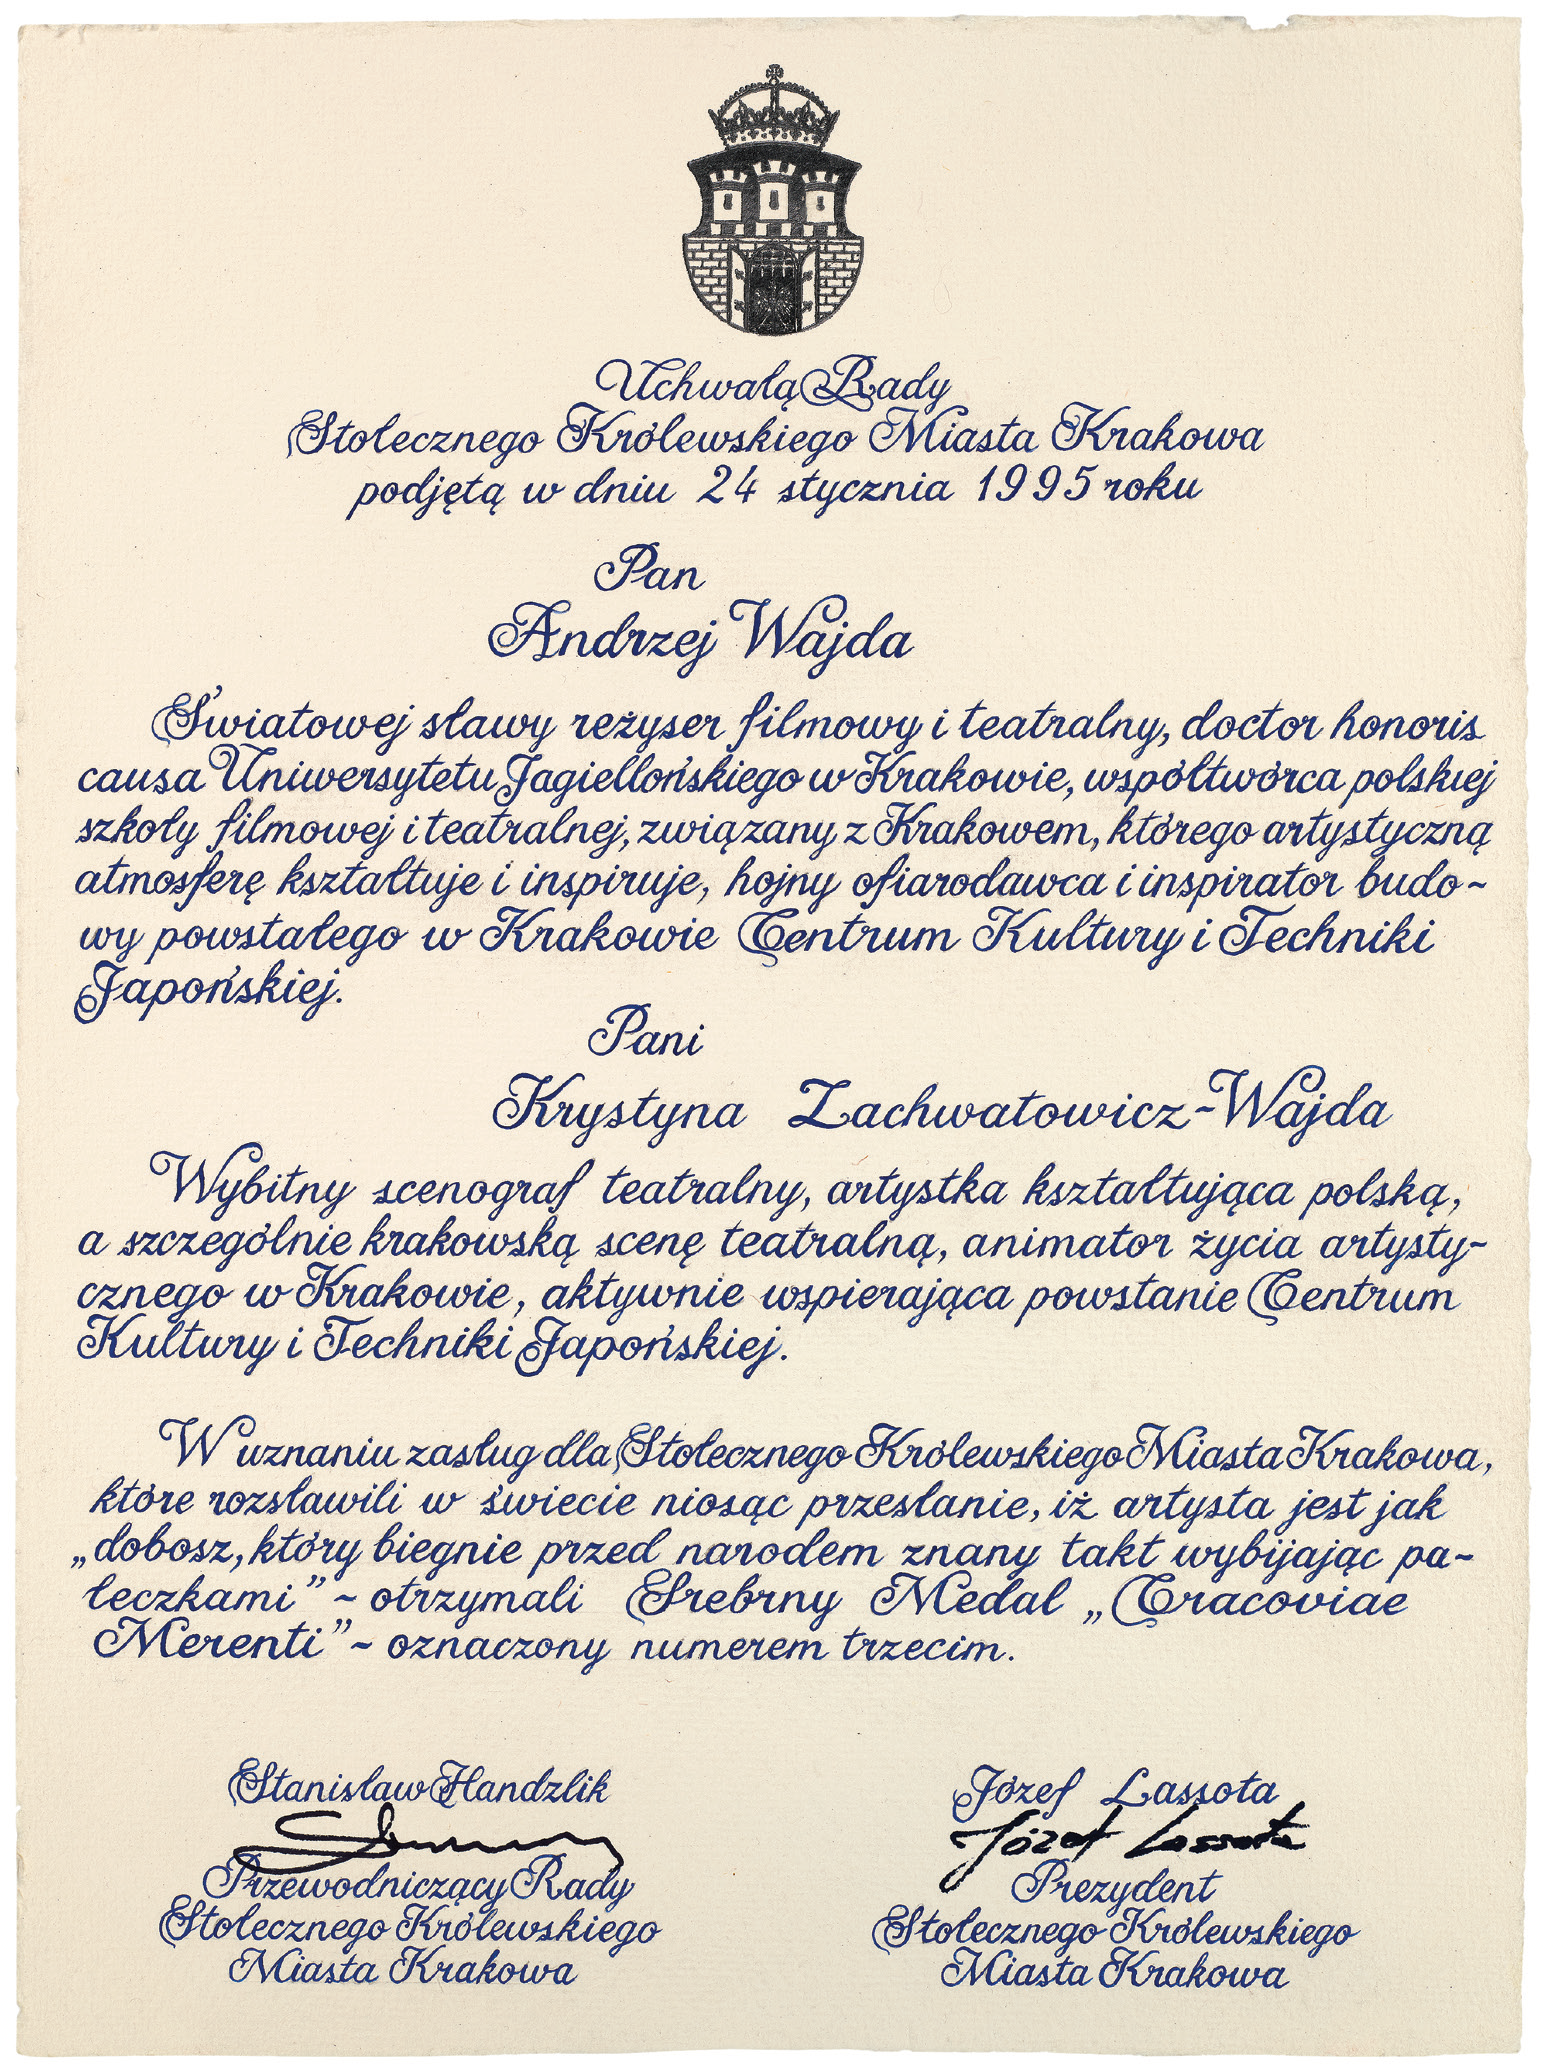 Uchwałą Rady
Stołecznego Królewskiego Miasta Krakowa
podjętą w dniu 24 stycznia 1995 roku
Pan
Andrzej Wajda
Światowej sławy reżyser filmowy i teatralny, doctor honoris
causa Uniwersytetu Jagiellońskiego w Krakowie, współtwórca polskiej
szkoły filmowej i teatralnej, związany z Krakowem, którego artystyczną
atmosferę kształtuje i inspiruje, hojny ofiarodawca i inspirator budo-
wy powstałego w Krakowie Centrum Kultury i Techniki
Japońskiej.
Pani
Krystyna Zachwatowicz-Wajda
Wybitny scenograf teatralny, artystka kształtująca polską,
a szczególnie krakowską scenę teatralną, animator życia artysty-
cznego w Krakowie, aktywnie wspierająca powstanie Centrum
Kultury i Techniki Japońskiej.
W uznaniu zasług dla Stołecznego Królewskiego Miasta Krakowa,
które rozsławili w świecie niosąc przesłanie, iż artysta jest jak
„dobosz, który biegnie przed narodem znany takt wybijając pa-
łeczkami” - otrzymali Srebrny Medal „Cracoviae
Merenti” - oznaczony numerem trzecim.
Stanisław Handzlik
Przewodniczący Rady
Stołecznego Królewskiego
Miasta Krakowa
Józef Lassota
Józef Lassota
Prezydent
Stołecznego Królewskiego
Miasta Krakowa